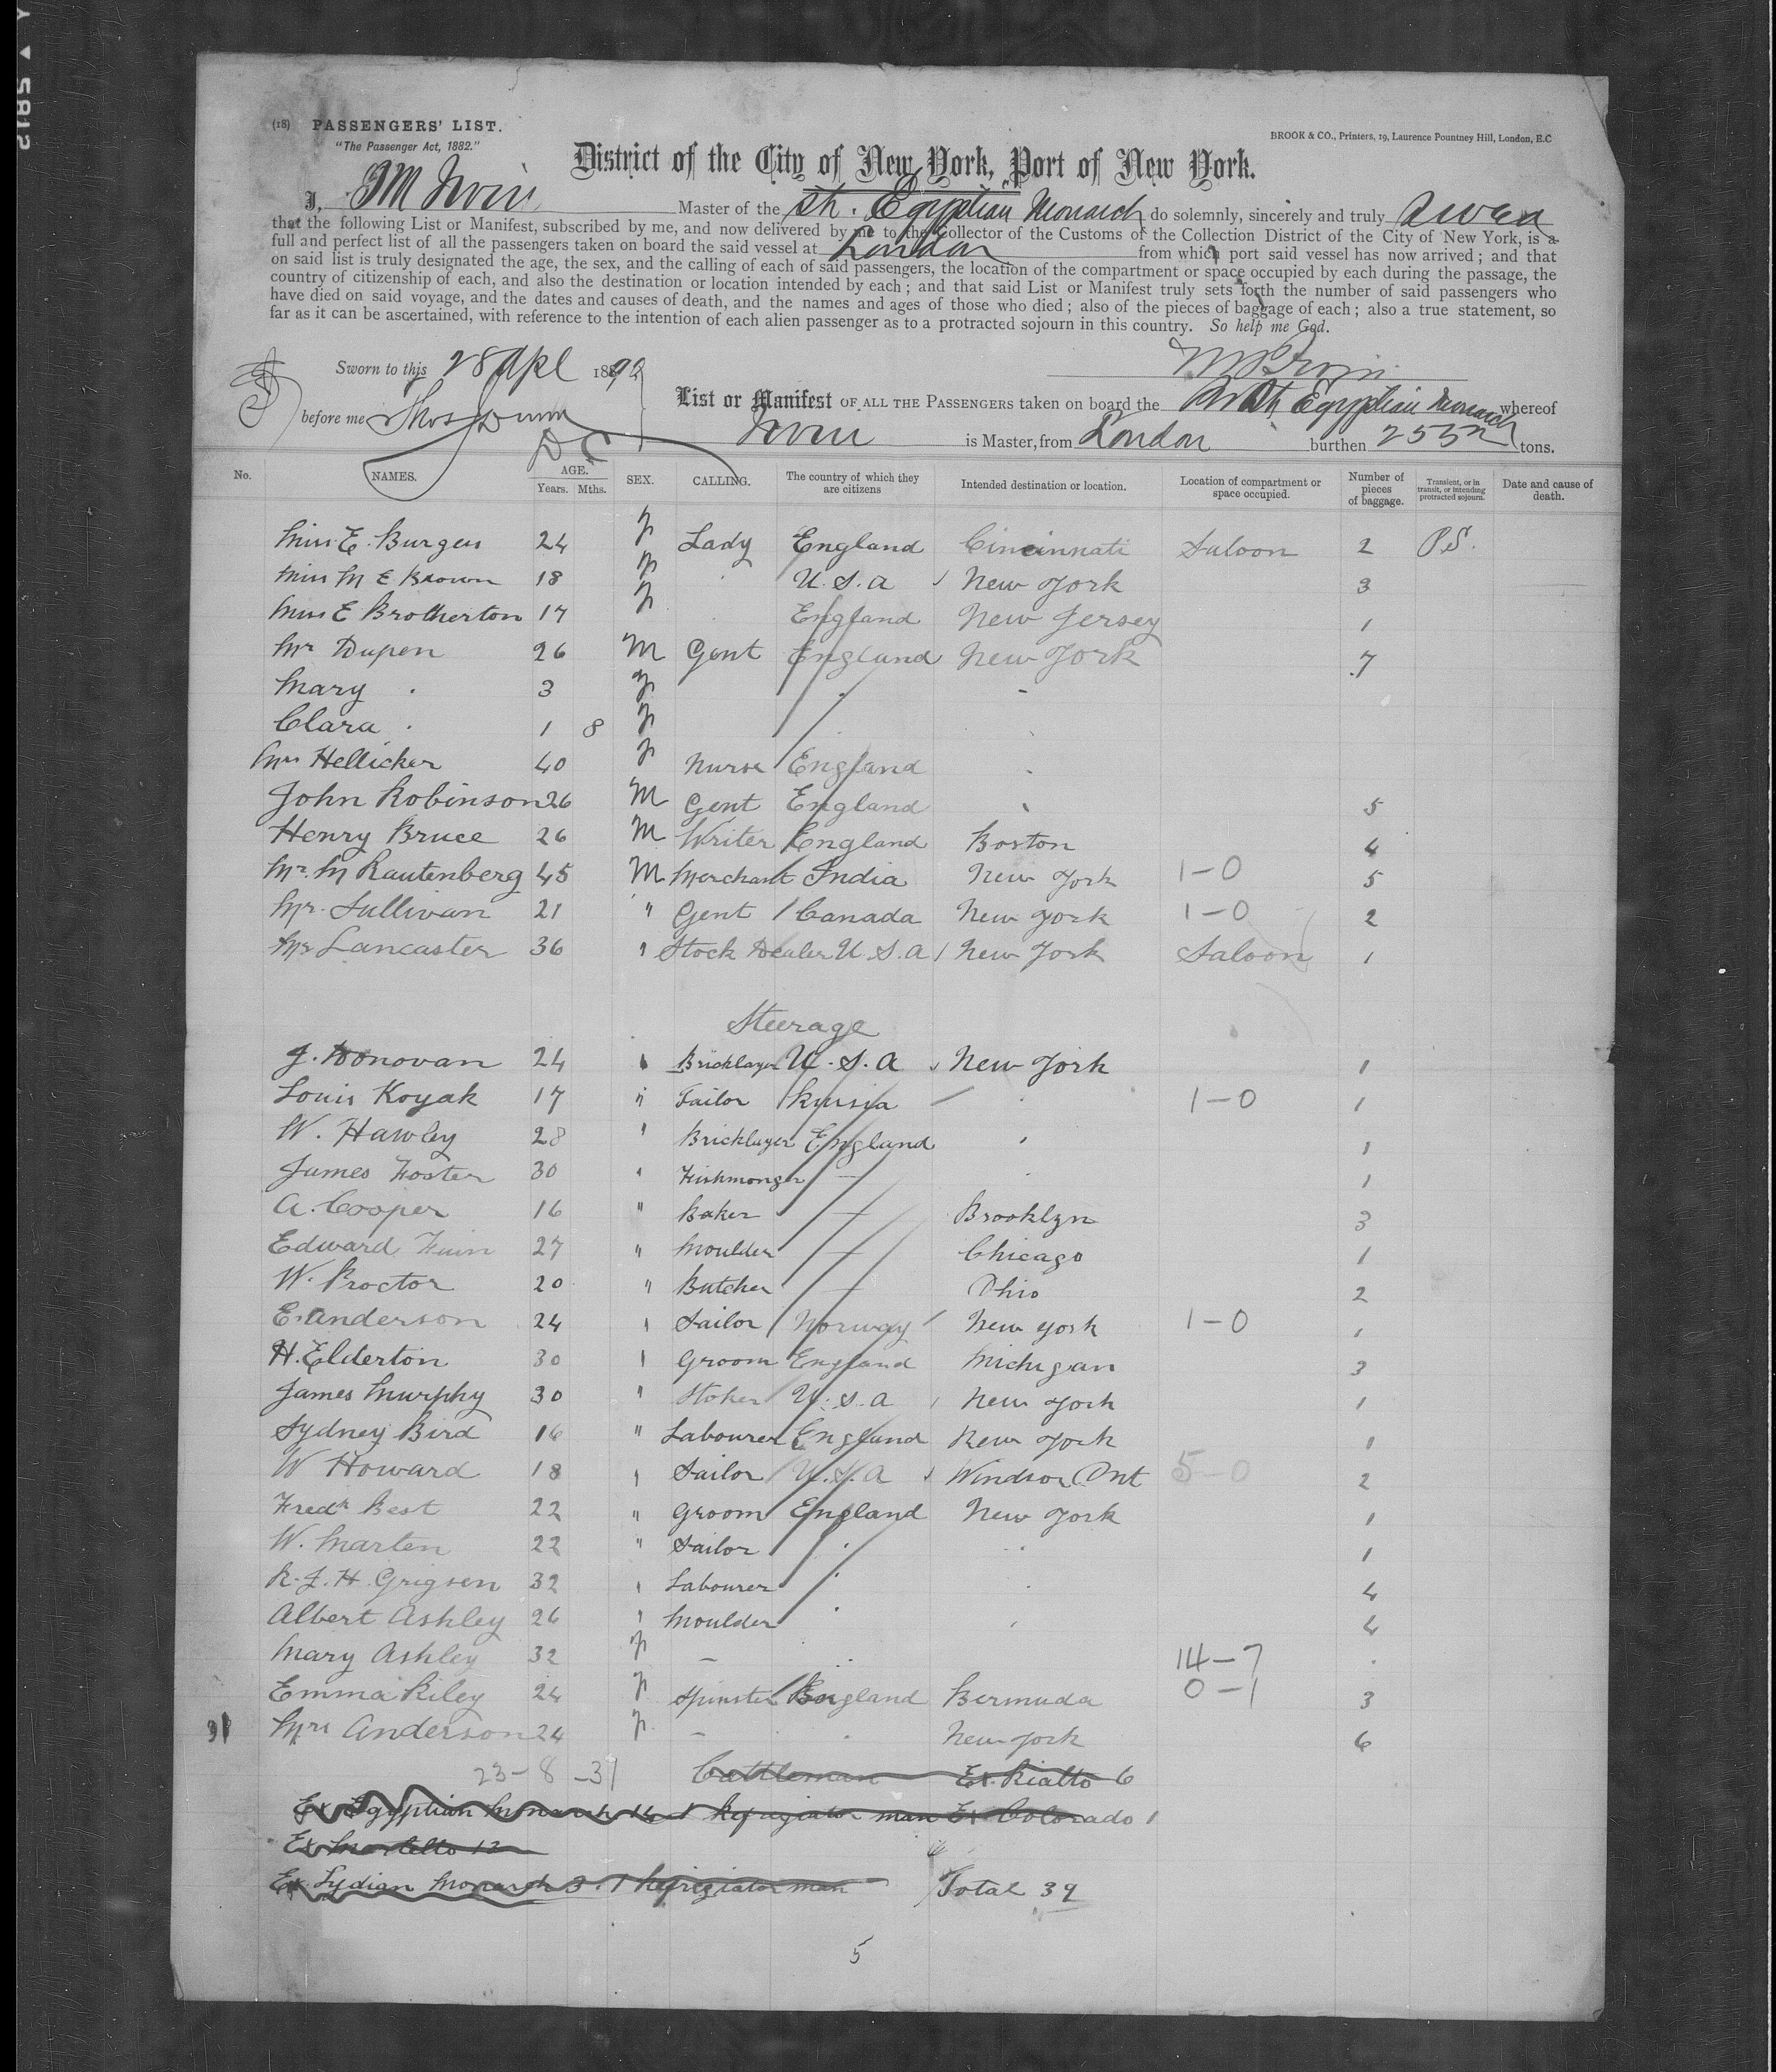 (18) PASSENGERS' LIST.
"The Passenger Act, 1882."
BROOK & CO., Printers, 19, Laurence Pountney Hill, London, E.C
District of the City of New York, Port of New York.
I, Master of the Egyptian Monarch do solemnly, sincerely and truly swear
that the following List or Manifest, subscribed by me, and now delivered by me to the Collector of the Customs of the Collection District of the City of New York, is a
full and perfect list of all the passengers taken on board the said vessel at London from which port said vessel has now arrived; and that
on said list is truly designated the age, the sex, and the calling of each of said passengers, the location of the compartment or space occupied by each during the passage, the
country of citizenship of each, and also the destination or location intended by each; and that said List or Manifest truly sets forth the number of said passengers who
have died on said voyage, and the dates and causes of death, and the names and ages of those who died; also of the pieces of baggage of each; also a true statement, so
far as it can be ascertained, with reference to the intention of each alien passenger as to a protracted sojourn in this country. So help me God.
Sworn to this 28 Apl 1892
before me Thos Dunn
D C
List or Manifest OF ALL THE PASSENGERS taken on board the Egyptian Monarch whereof
Irvin is Master, from London burthen tons.
No. NAMES. AGE. Years. Mths. SEX. CALLING. The country of which they are citizens Intended destination or location. Location of compartment or space occupied. Number of pieces of baggage. Transient, or in transit, or intending protracted sojourn. Date and cause of death.
Miss E. Burgess 24 F Lady England Cincinnati Saloon 2 P.S.
Miss M E Brown 18 F U.S.A New York 3
Miss E Brotherton 17 F England New Jersey 1
Mr Dupen 26 M Gent England New York 7
Mary . 3 F
Clara . 1 8 F
Mrs Hellicker 40 F Nurse England
John Robinson 26 M Gent England 5
Henry Bruce 26 M Writer England Boston 4
Mr. M Rautenberg 45 M Merchant India New York 1-0 5
Mr. Sullivan 21 " Gent Canada New York 1-0 2
Mr Lancaster 36 " Stock Dealer U.S.A New York Saloon 1
Steerage
J. Donovan 24 " Bricklayer U.S.A New York 1
Louis Koyak 17 " Tailor Russia 1-0 1
W. Hawley 28 " Bricklayer England 1
James Foster 30 " Fishmonger — 1
A. Cooper 16 " Baker — Brooklyn 3
Edward 27 " Moulder — Chicago 1
W. Proctor 20 " Butcher — Ohio 2
E. Anderson 24 " Sailor Norway New York 1-0 1
H. Elderton 30 " Groom England Michigan 3
James Murphy 30 " Stoker U.S.A New York 1
Sydney Bird 16 " Labourer England New York 1
W Howard 18 " Sailor U.S.A Windsor Ont 5-0 2
Fredk Best 22 " Groom England New York 1
W. Marten 22 " Sailor " 1
R.J.H. Grigsen 32 " Labourer " 4
Albert Ashley 26 " Moulder " 4
Mary Ashley 32 F — 14-7
Emma Riley 24 F Spinster England Bermuda 0-1 3
31 Mrs Anderson 24 F — New York 6
23-8-31 Cattleman Ex. Rialto 6
Ex Egyptian Monarch 14 1 Refrigiator man Ex Colorado 1
Ex
Ex. Lydian Monarch 3. 1 Refrigiator man Total 39
5